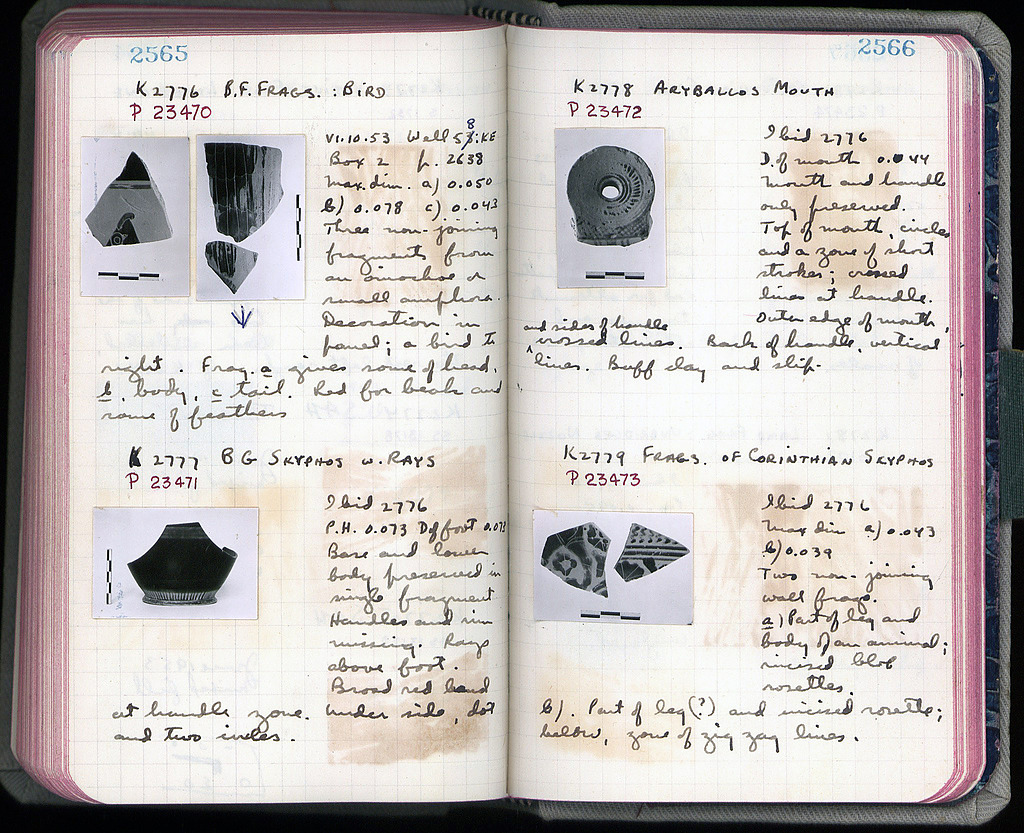 2565
K 2776 B.F. FRAGS. : BIRD
P 23470
VI.10.53 Well 58 : KE
Box 2 p. 2638
Max. dim. a) 0.050
b) 0.078 c) 0.043
Three non-joining
fragments from
an oinochoe or
small amphora.
Decoration in
panel; a bird to
right. Frag. a gives some of head,
b, body, c tail. Red for beak and
some of feathers
K 2777 BG SKYPHOS W. RAYS
P 23471
Ibid 2776
P.H. 0.073 D of foot 0.073
Base and lower
body preserved in
single fragment
Handles and rim
missing. Rays
above foot.
Broad red band
at handle zone. Under side, dot
and two circles.
2566
K2778 ARYBALLOS MOUTH
P 23472
Ibid 2776
D. of mouth 0.044
Mouth and handle
only preserved.
Top of mouth, circles
and a zone of short
strokes; crossed
lines at handle.
Outer edge of mouth,
and sides of handle
crossed lines. Back of handle, vertical
lines. Buff clay and slip.
K2779 FRAGS. OF CORINTHIAN SKYPHOS
P 23473
Ibid 2776
Max dim a) 0.043
b) 0.039
Two non-joining
wall frags.
a) Part of leg and
body of an animal;
incised blob
rosettes.
b). Part of leg (?) and incised rosette;
below, zone of zig zag lines.